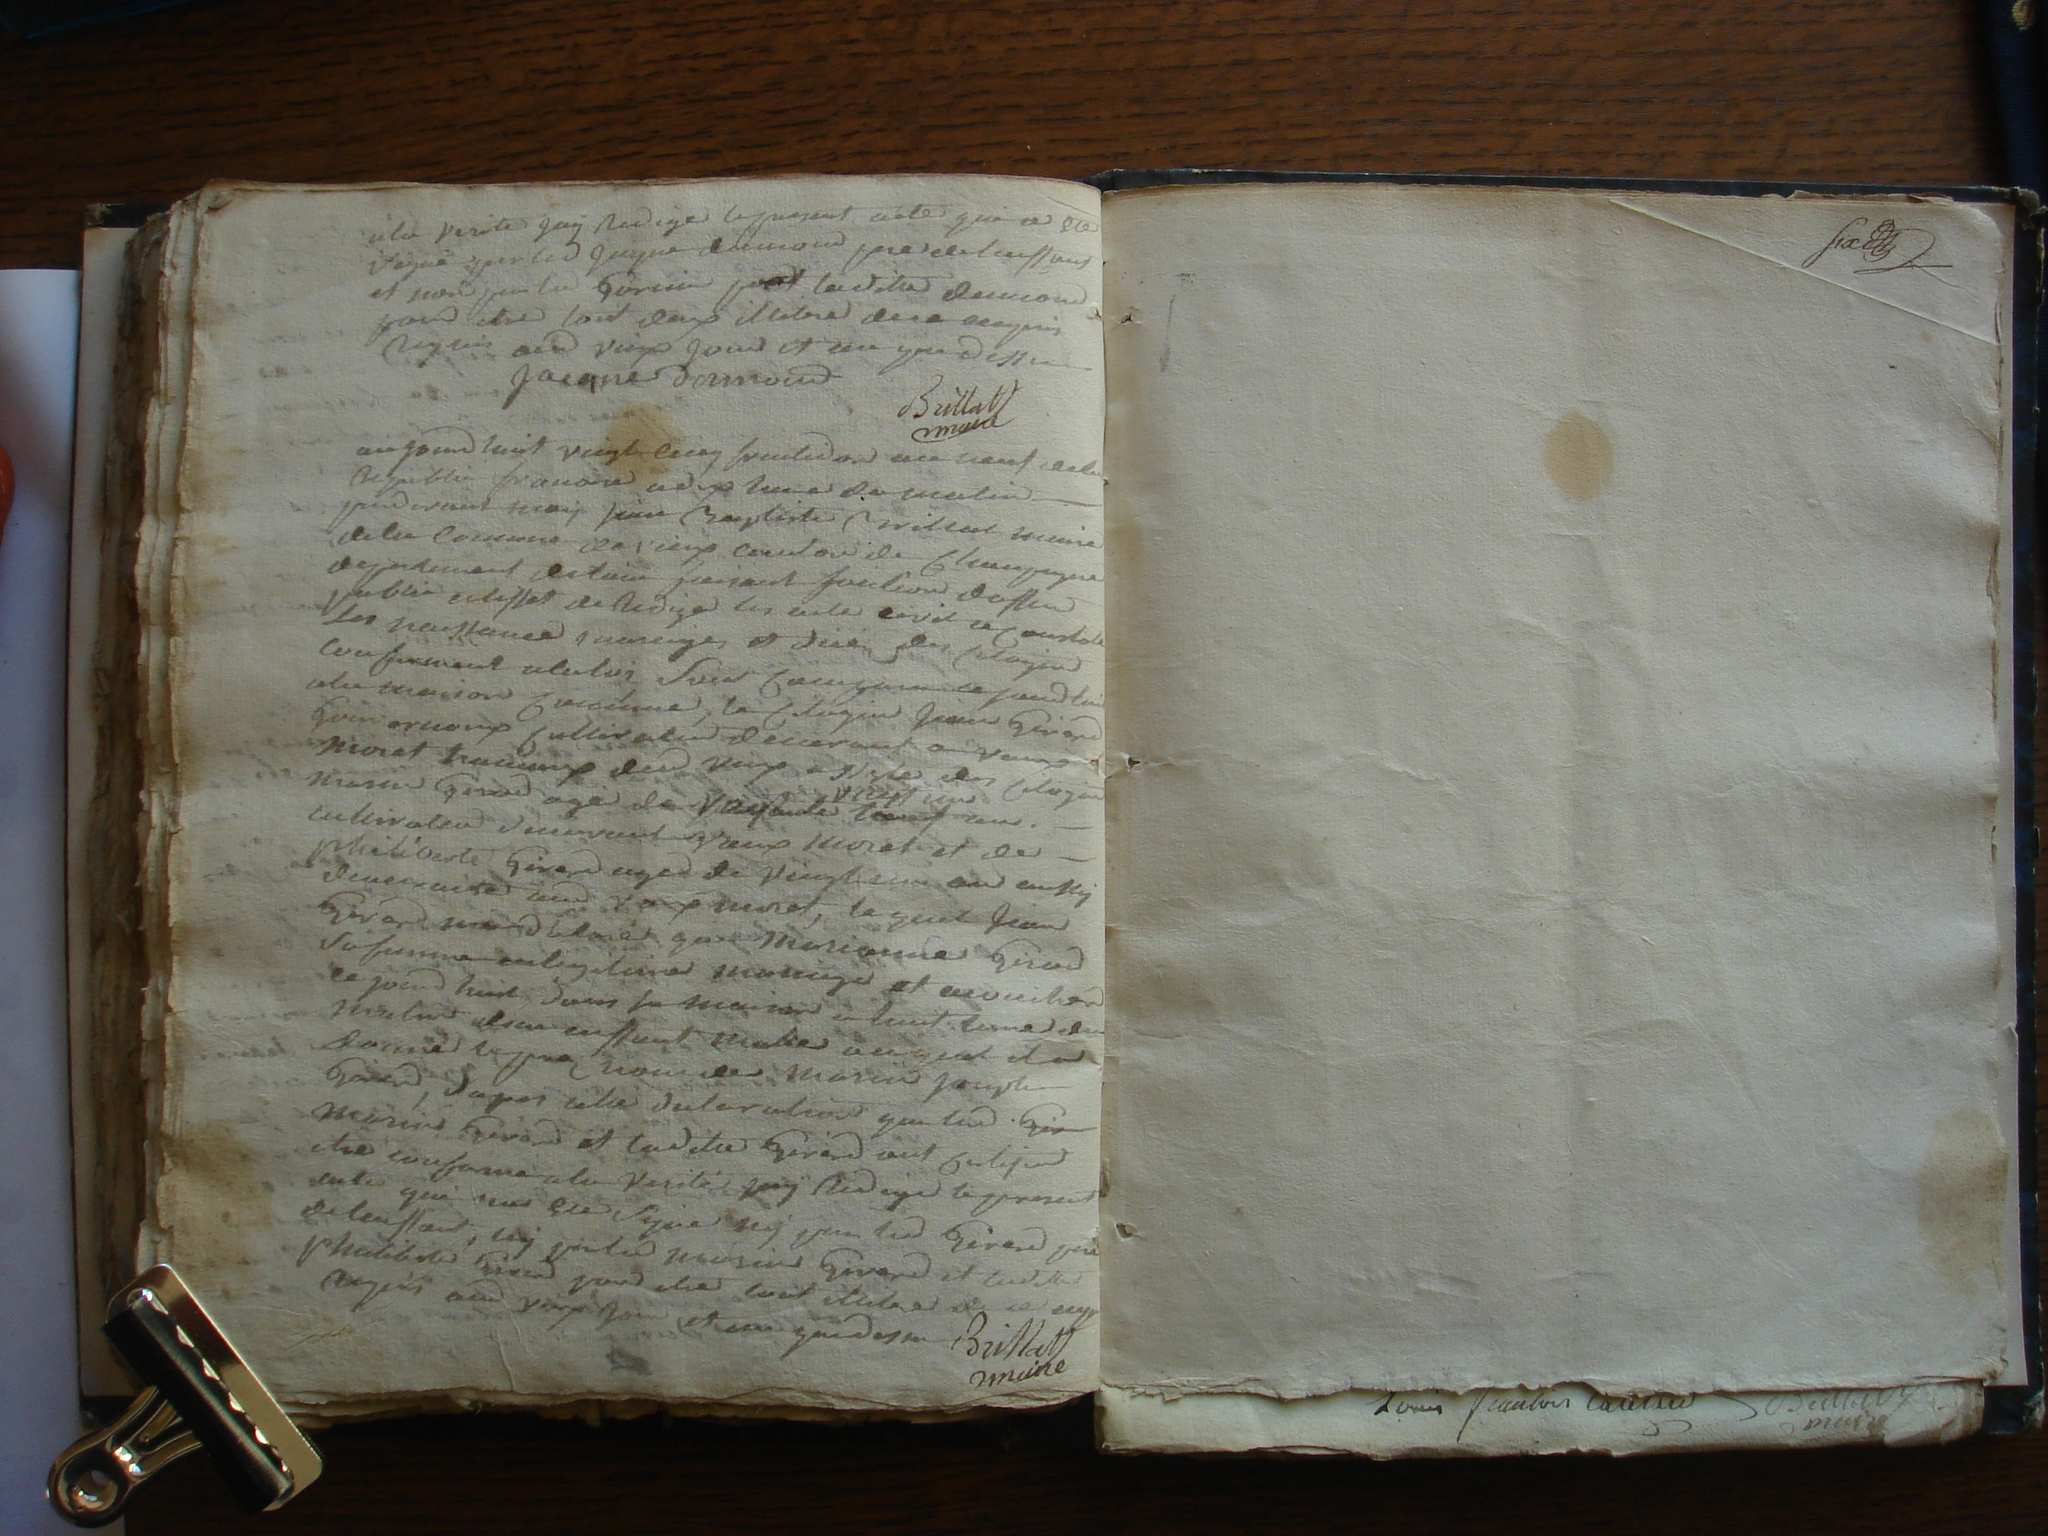 ala verite jay Redige le present acte qui a ete
Signe par led Jacque dormond pere de lenffant
et non par led et ladite dormond
pour etre tout deux illitere de ce enquis
Requis aud vieux Jour et an que dessu
Jacque dormond
Brillat
maire
aujourdhuit vingt cinq fructidor an neuf dela
Republic francoise a dix heure du matin
pardevant moy jean Baptiste Brillat maire
dela Commune de vieux canton de Champagne
departement de lain faisant fonction doffier
public a leffet de Rediger les acte civil et Constate
les naissance mariages et deces des Citoyen
Conformement alaloi Sont Comparu ce jourdhui
ala maison Commune, le Citoyen Jean Gerard
cultivateur demeurant au vaux
moret hameaux dud vieux assiste des Citoyen
marin Gerard age de vingt un ans
cultivateur demeurant a vaux moret et de
philiberte Gerard agee de vingt un ans aussy
demeurante aud vaux moret, le quel Jean
Gerard ma declare que Marianne Gerard
Sa femme en legitime mariage et accouchee
ce jourdhuit dans sa maison a huit heure du
matin dun enffant male au quel il a
donné le pre nom de marin joseph
Gerard, dapres cette declaration que led Ger
Marin Gerard et ladite Gerard ont Certifier
etre conforme ala Verité jay Redige le present
acte qui na ete Signe ny par led Gerard pere
de lenffant, ny par led marin Gerard et ladite
philiberte Gerard pour etre tout illitere de ce enqu
Requis aud vieux Jour et an que dessu
Brillat
maire
Louis francois
Brillat
maire